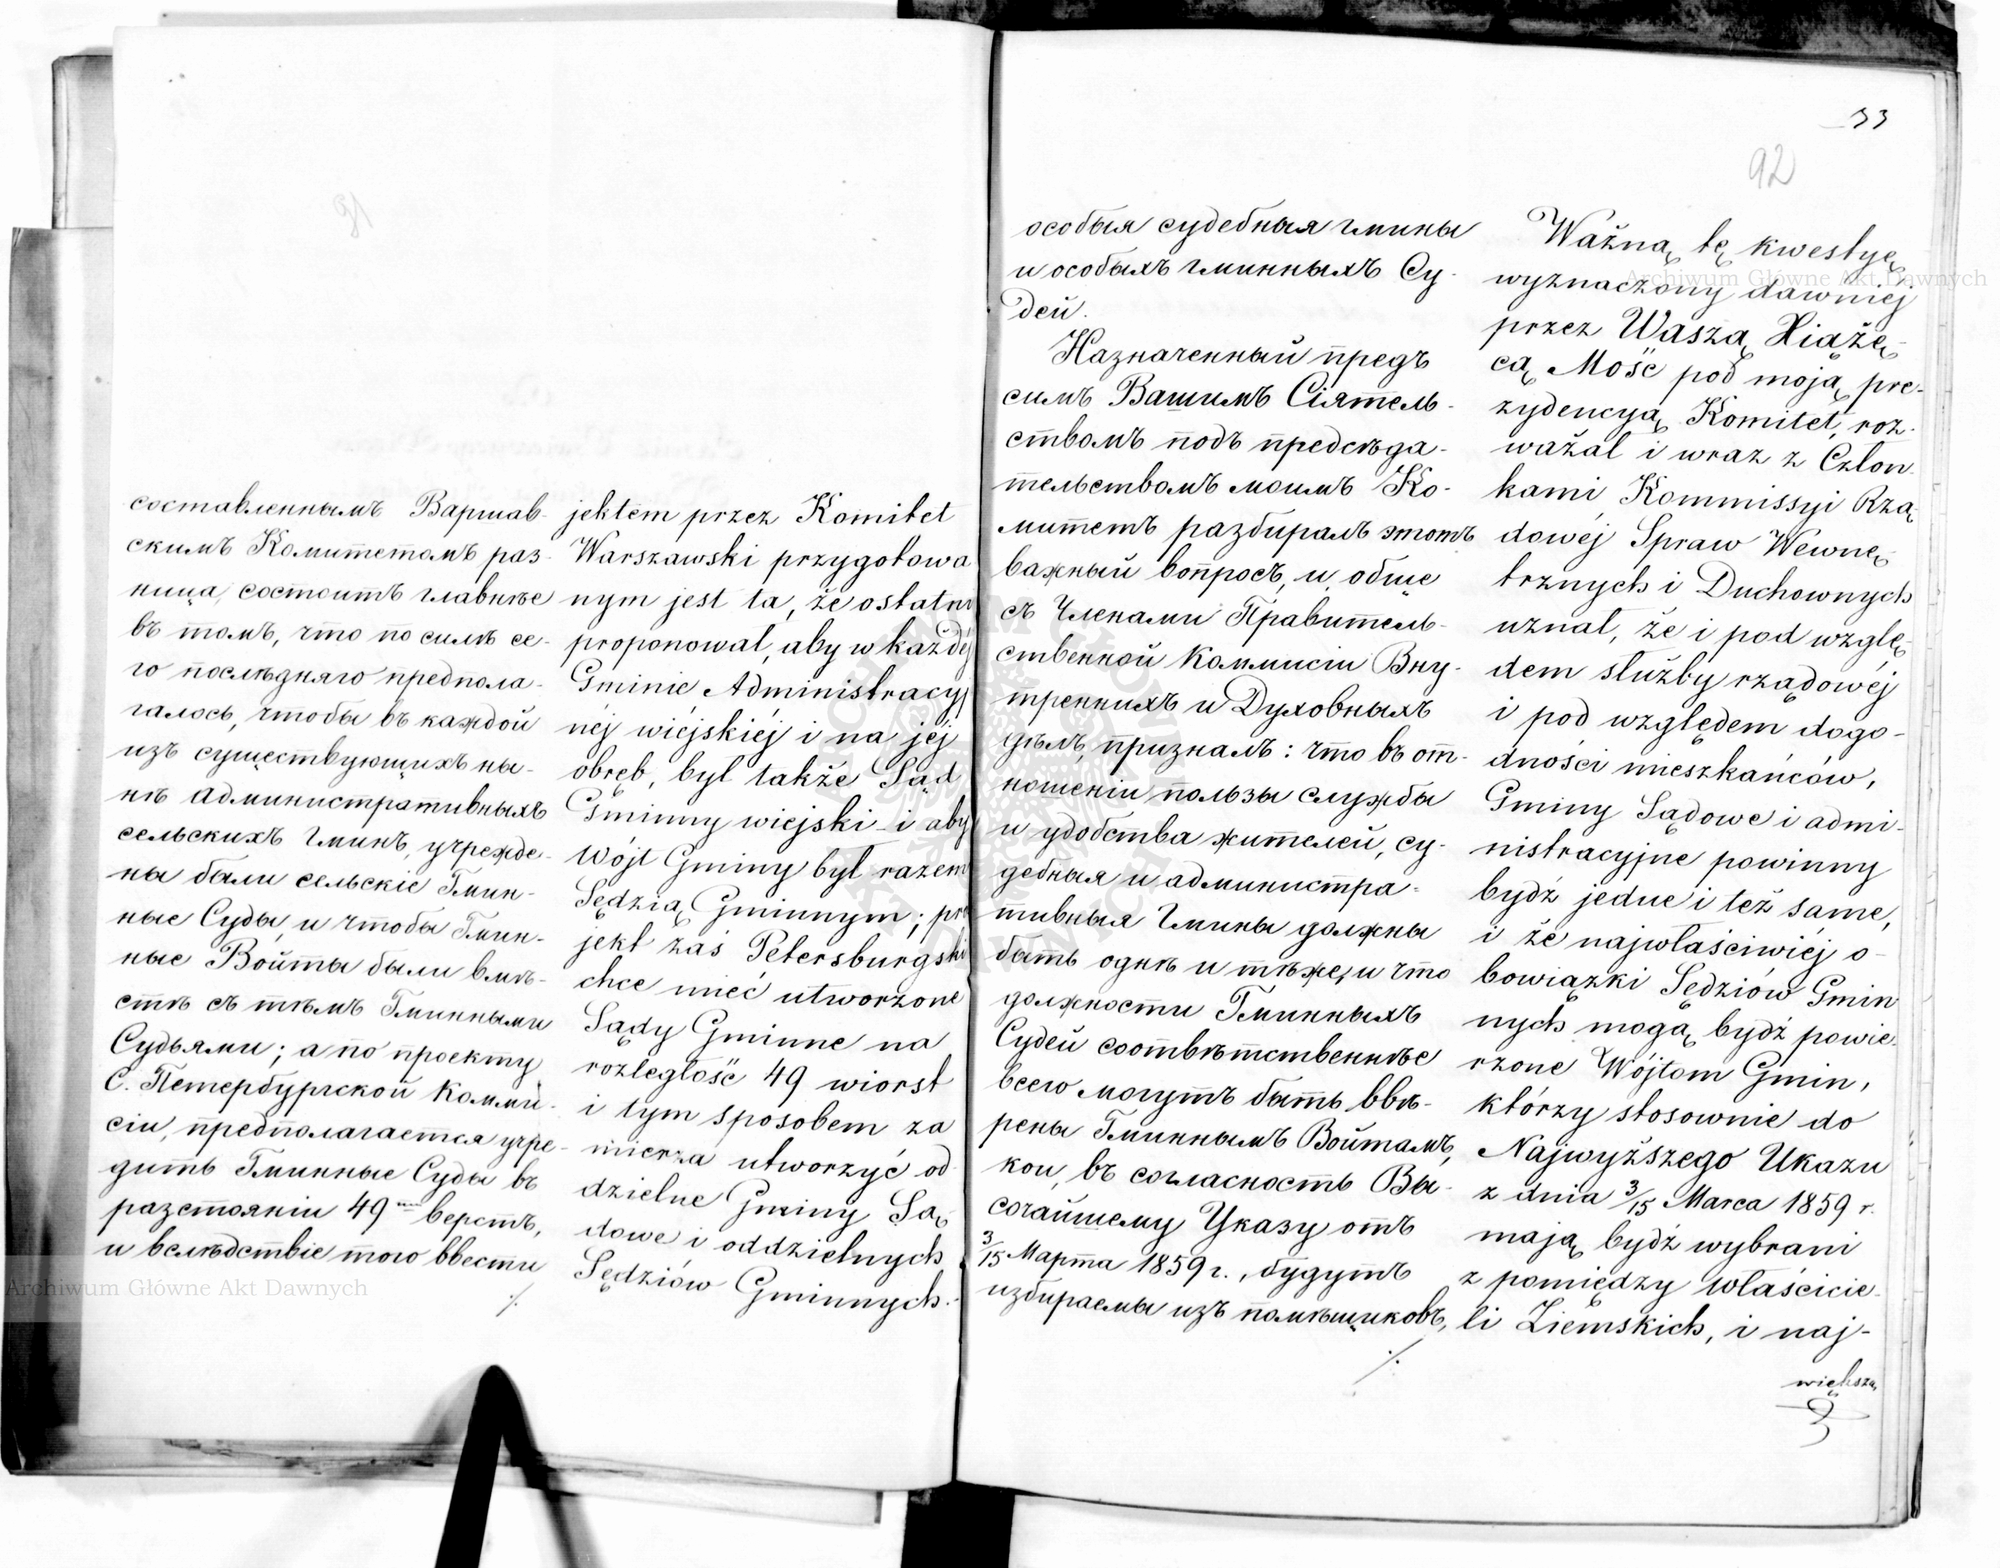 составленнымъ Варшав-
скимъ Комитетомъ раз-
ница, состоитъ главнѣе
въ томъ, что по силѣ се-
го послѣдняго предпола-
галось, чтобы въ каждой
изъ существующихъ ны-
нѣ административныхъ
сельскихъ гминъ, учрежде-
ны были сельскіе Гмин-
ные Суды, и чтобы Гмин-
ные Войты были вмѣ-
стѣ съ тѣмъ Гминными
Судьями; а по проекту
С. Петербургской Комми-
сіи, предполагается учре-
дить Гминные Суды въ
разстояніи 49 верстъ,
и вслѣдствіе того ввести
./.
jektem przez Komitet
Warszawski przygotowa
nym jest ta, że ostatni
proponował, aby w każdéj
Gminie Administracyj
néj wiejskiéj i na jej
obręb, był także Sąd
Gminny wiejski i aby
Wójt Gminy był razem
Sędzią Gminnym; pro
jekt zaś Petersburgski
chce mieć utworzone
Sądy Gminne na
rozległość 49 wiorst
i tym sposobem za
mierza utworzyć od
dzielne Gminy Są
dowe i oddzielnych
Sędziów Gminnych.
33
92
особыя судебныя гмины
и особыхъ гминныхъ Су-
дей.
Назначенный предъ
симъ Вашимъ Сіятель-
ствомъ подъ предсѣда-
тельствомъ моимъ Ко-
митетъ разбиралъ этотъ
важный вопросъ, и обще
съ Членами Правитель-
ственной Коммисіи Вну-
тренныхъ и Духовныхъ
дѣлъ, призналъ: что въ от-
ношеніи пользы службы
и удобства жителей, су-
дебныя и администра-
тивныя гмины должны
быть однѣ и тѣже, и что
должности Гминныхъ
Судей соотвѣтственнѣе
всего могутъ быть ввѣ-
рены Гминнымъ Войтамъ,
кои, въ согласность Вы-
сочайшему Указу отъ
3/15 Марта 1859 г., будутъ
избираемы изъ помѣщиковъ,
./.
Ważną tę kwestyę
wyznaczony dawniéj
przez Waszą Xiążę-
cą Mość pod moją pre-
zydencyą Komitet, roz-
ważał i wraz z Człon-
kami Kommissyi Rzą
dowéj Spraw Wewnę
trznych i Duchownych
uznał, że i pod wzglę-
dem służby rządowéj
i pod względem dogo-
dności mieszkańców,
Gminy Sądowe i admi-
nistracyjne powinny
bydź jedne i też same,
i że najwłaściwiéj o-
bowiązki Sędziów Gmin
nych mogą bydź powie-
rzone Wójtom Gmin,
którzy stosownie do
Najwyższego Ukazu
z dnia 3/15 Marca 1859 r.
mają bydź wybrani
z pomiędzy właścicie-
li Ziemskich, i naj-
większą
Archiwum Główne Akt Dawnych
Archiwum Główne Akt Dawnych